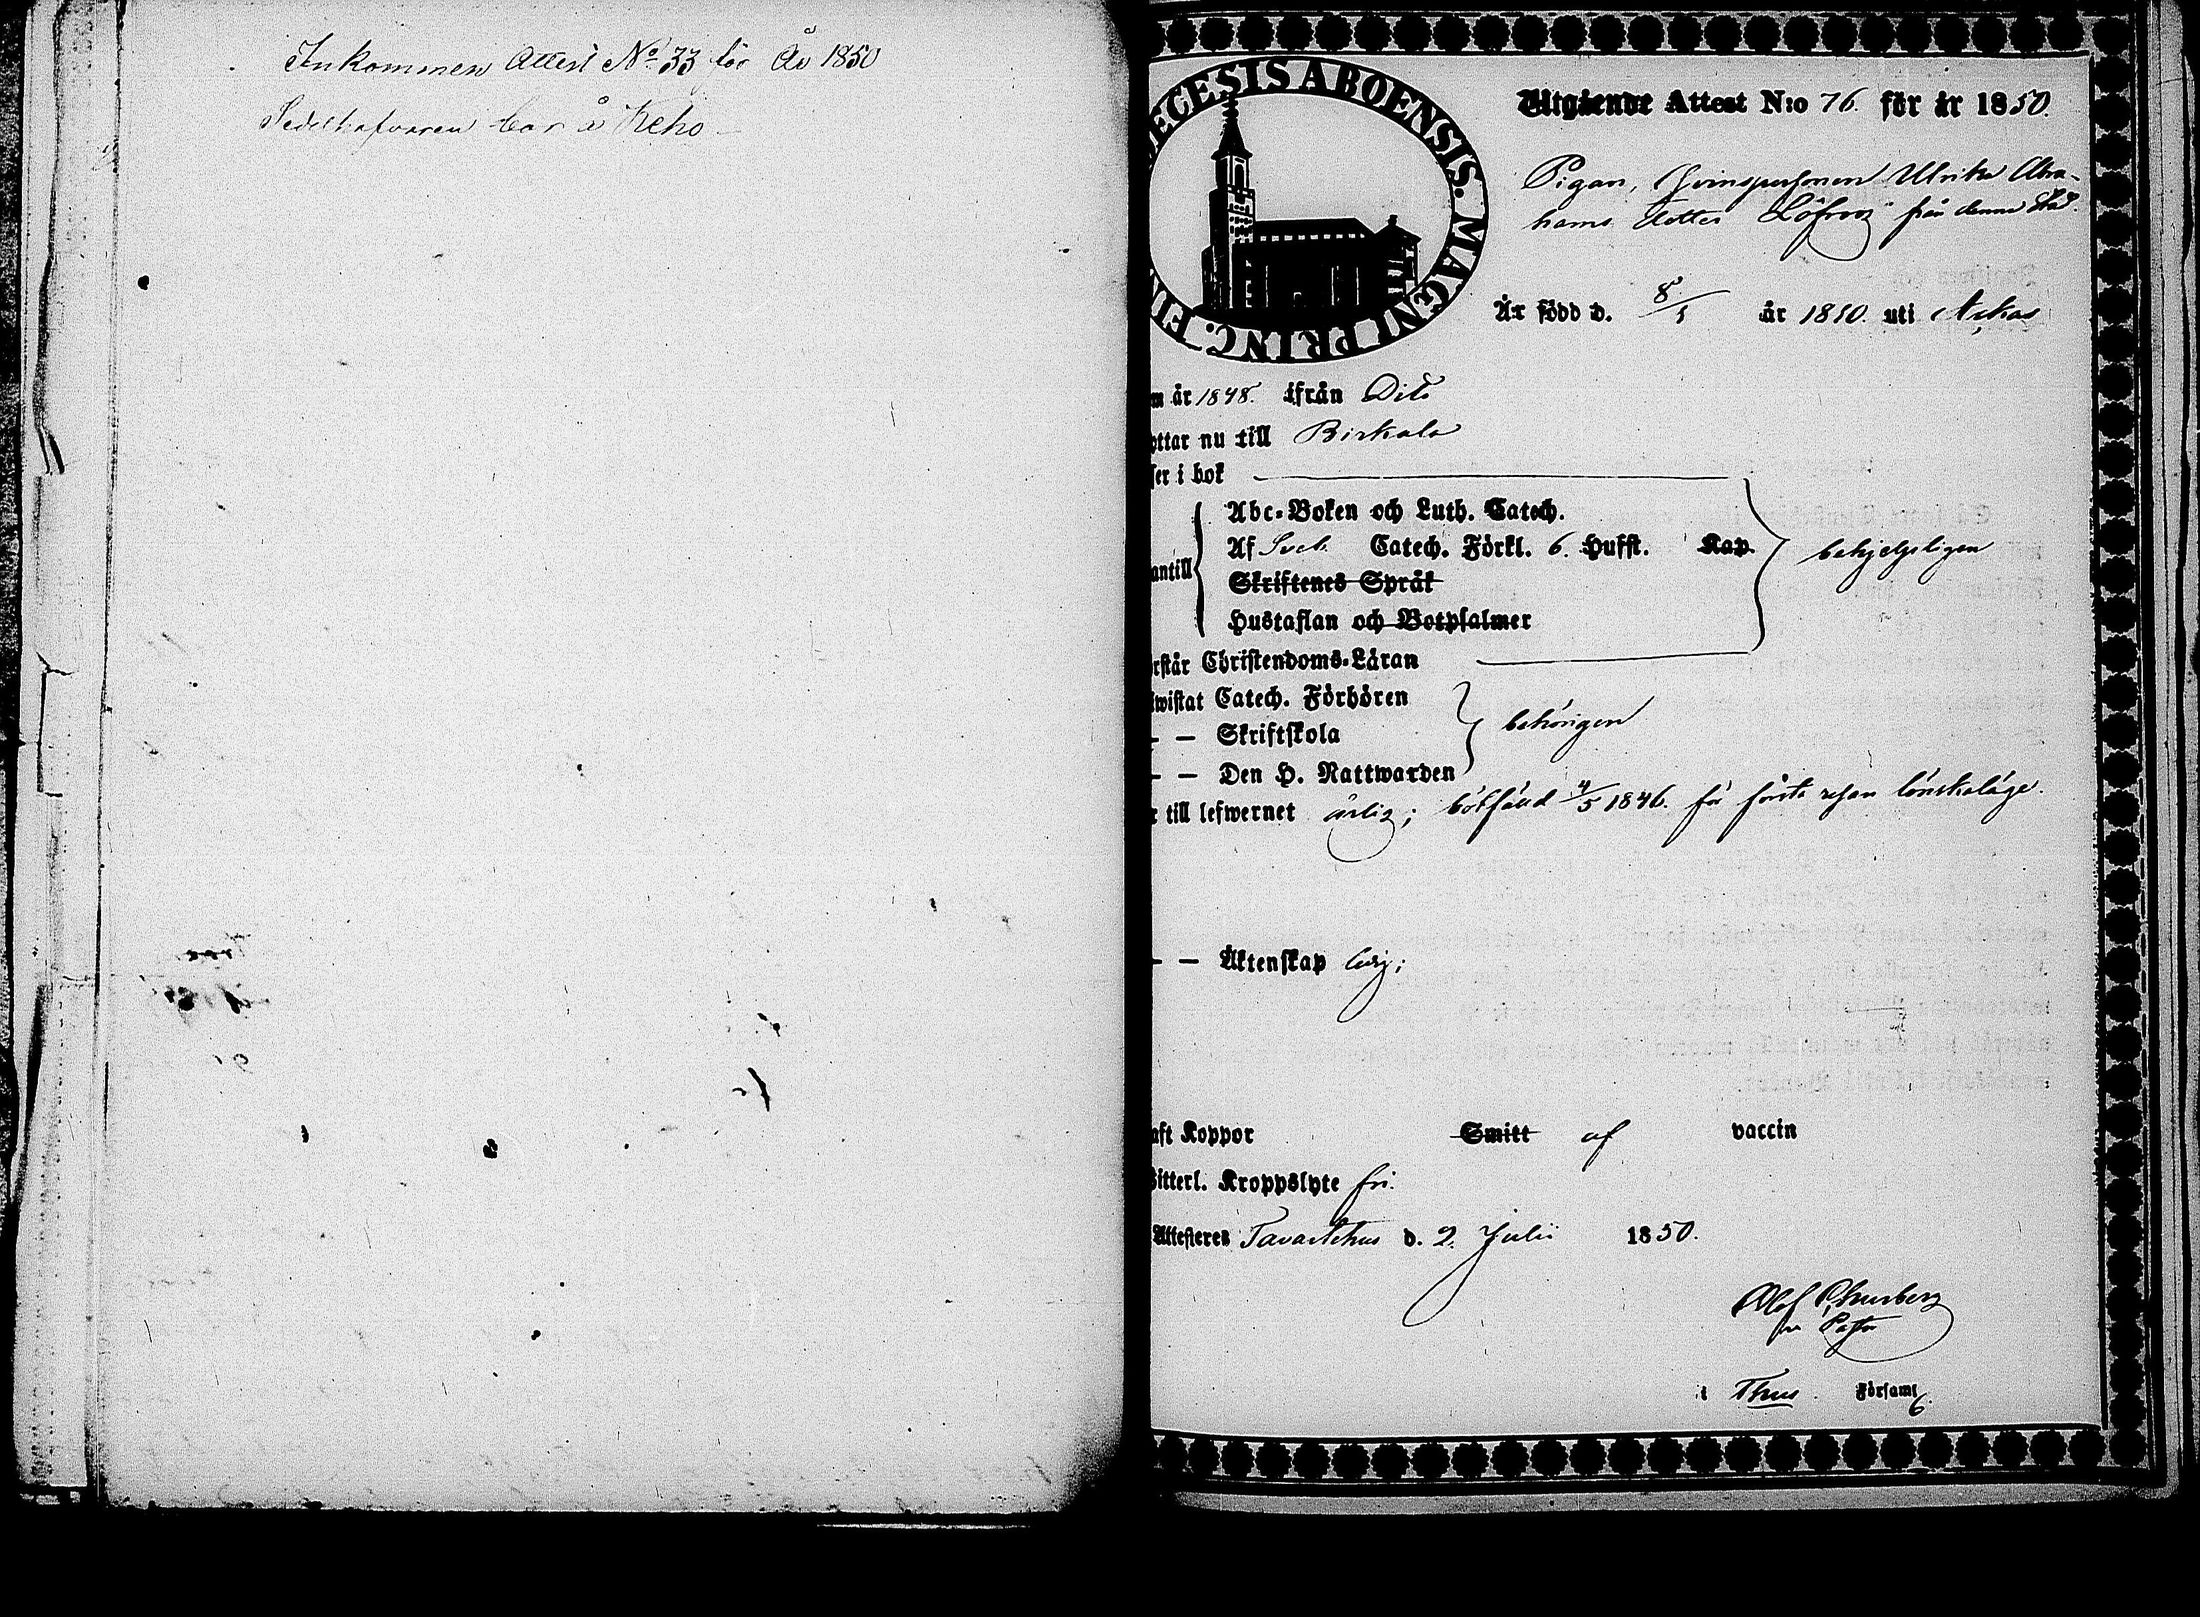 Inkommen Attest No 33 för År 1850
Sedelhafvaren bor å Keho
ECESIS ABOENSIS. MAGNI PRINC. FIN
Utgående Attest N:o 76. för år 1850.
Pigan, Qvinspersonen Ulrika Abra-
hams dotter Löfroos från denne Stad.
Är född d. 8/1 år 1810. uti Ackas
m år 1848. ifrån Dito
yttar nu till Birkala
ser i bok
Abc-Boken och Luth. Catech.
Af Sveb. Catech. Förkl. 6. Hufst. Kap. behjelpligen
antill
Skriftenes Språk
Hustaflan och Botpsalmer
rstår Christendoms-Läran
iwistat Catech. Förhören
— — Skriftskola behörigen
— — Den H. Nattwarden
r till lefwernet ärlig; bötfälld 4/5 1846. för första resan lönskaläge.
— — Äktenskap ledig;
aft Koppor Smitt af vaccin
Bitterl. Kroppslyte fri.
Attesteres Tavastehus d. 2. Julii 1850.
Olof
v. Pastor
i Thus. Församl.
6.